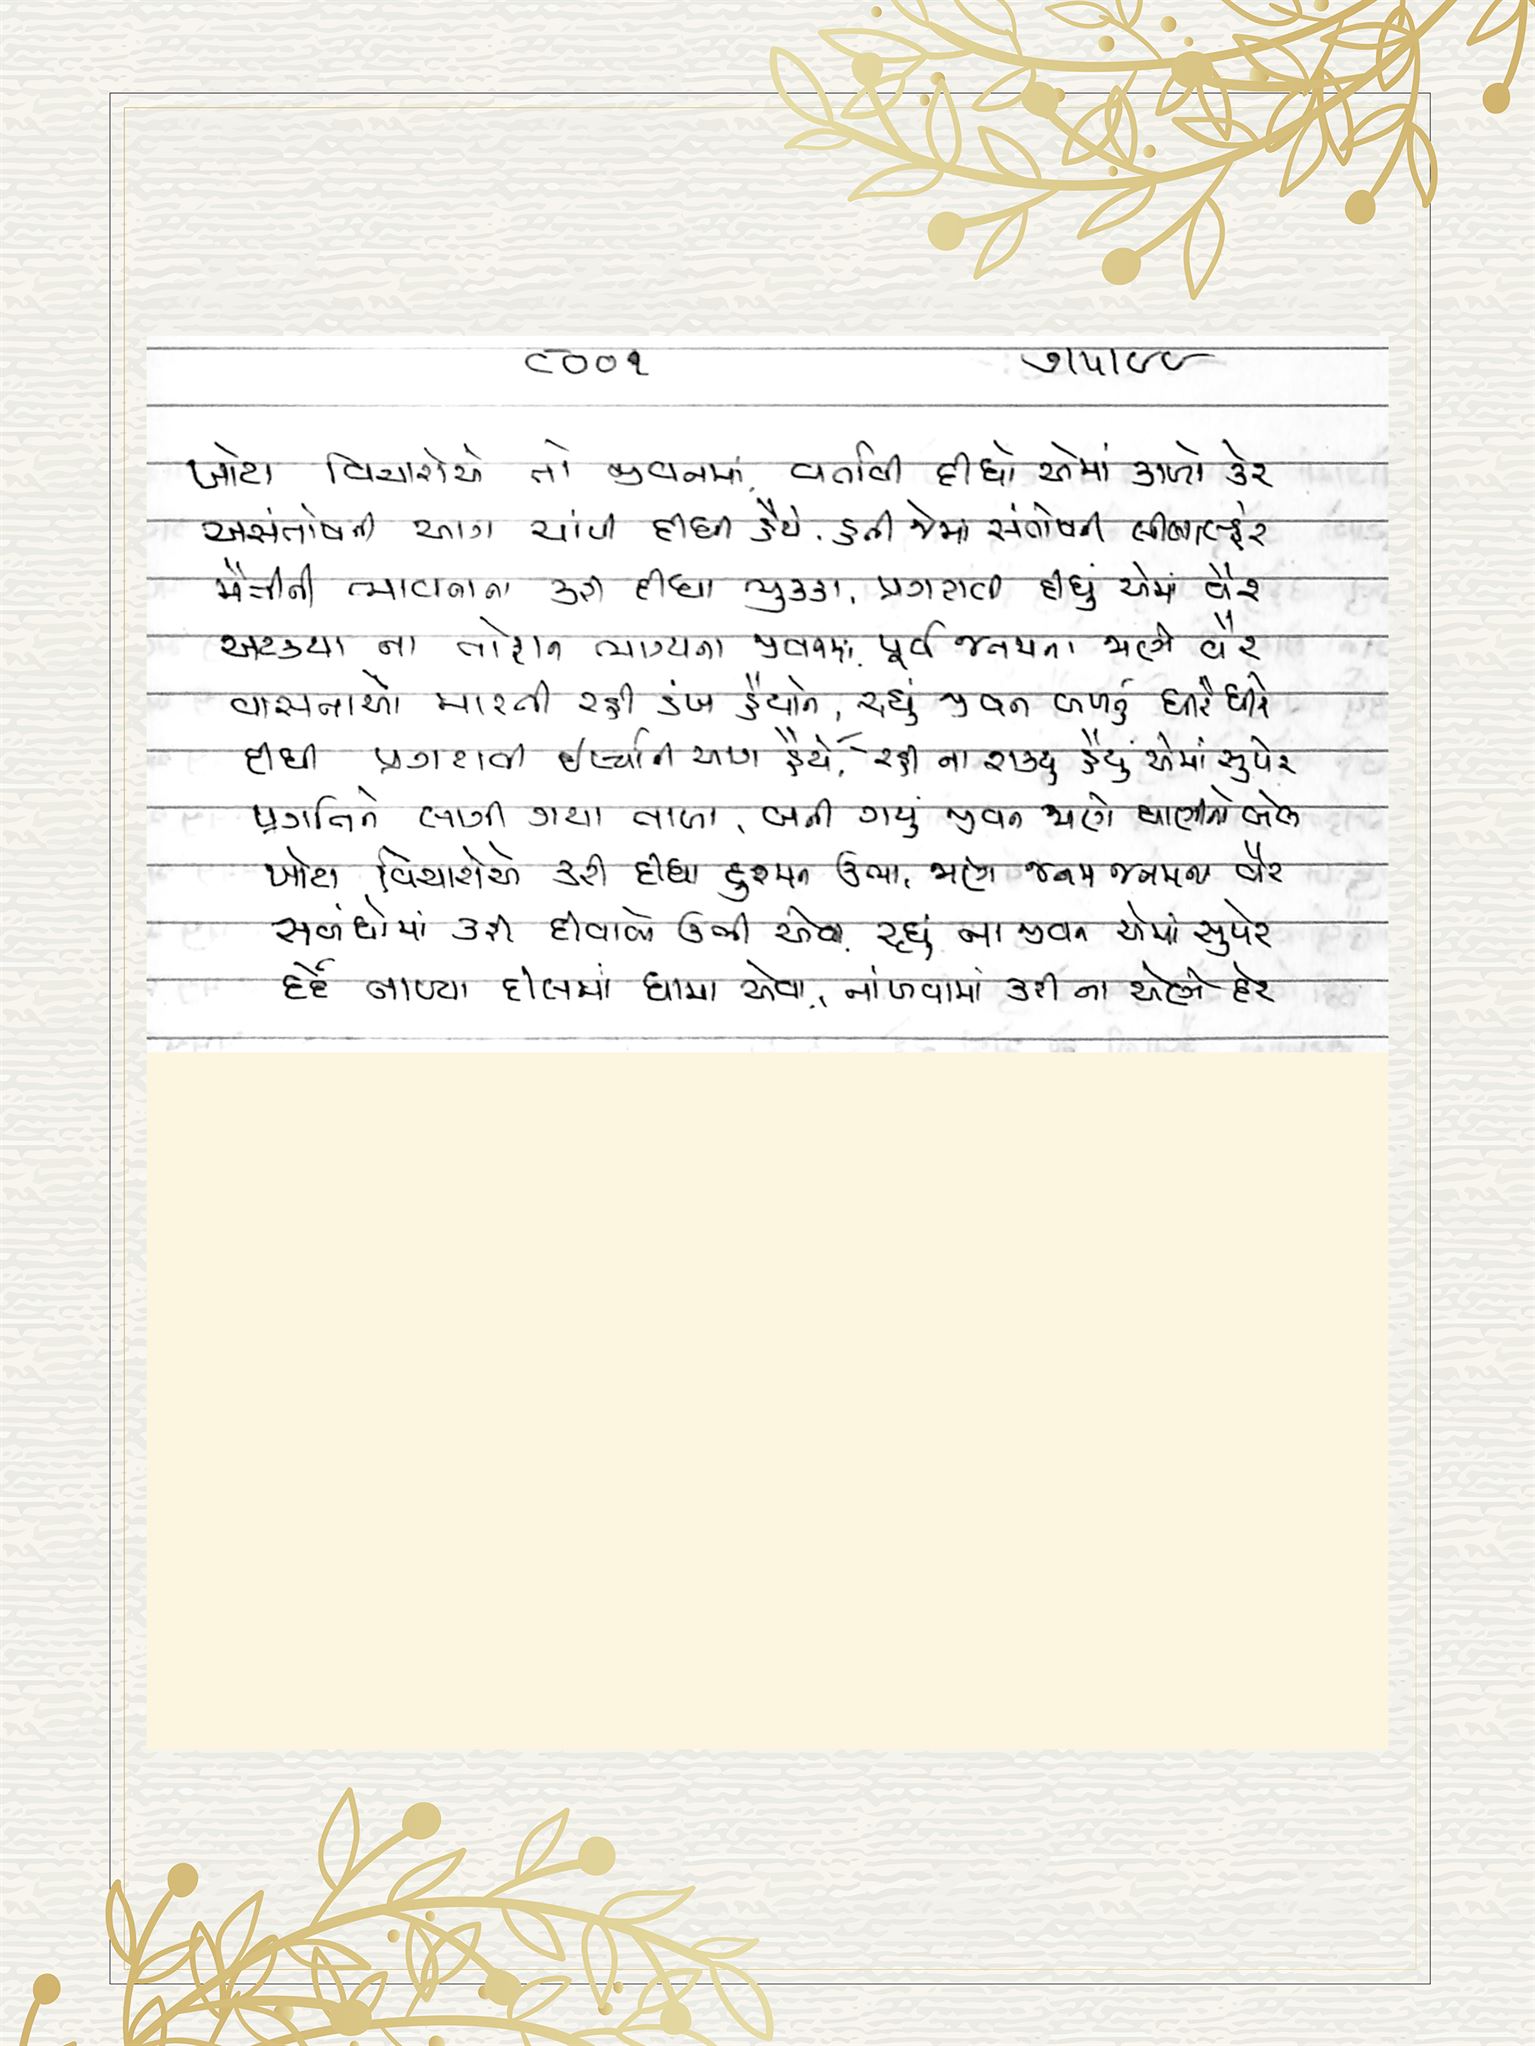 ૮૦૦૧ ૭/૫/૯૯
ખોટા વિચારોએ તો જીવનમાં, વર્તાવી દીધો એમાં કાળો કેર
અસંતોષની આગ ચાંપી દીધી હૈયે, હતી જેમાં સંતોષની લીલાલ્હેર
મૈત્રીની ભાવનાના કરી દીધા ભુક્કા, પ્રગટાવી દીધું એમાં વૈર
અટક્યા ના તોફાન ભાગ્યના જીવનમાં, પૂર્વ જનમના જાણે વૈર
વાસનાઓ મારતી રહી ડંખ હૈયાને, રહ્યું જીવન બળતું ધીરે ધીરે
દીધી પ્રગટાવી ઈર્ષ્યાની આગ હૈયે, રહી ના શક્યું હૈયું એમાં સુપેર
પ્રગતિને લાગી ગયા તાળા, બની ગયું જીવન જાણે ઘાણીનો બેલ
ખોટા વિચારોએ કરી દીધા દુશ્મન ઉભા, જાણે જનમ જનમના વૈર
સબંધોમાં કરી દીવાલો ઉભી એવી, રહ્યું ના જીવન એમાં સુપેર
દર્દે નાખ્યા દીલમાં ધામા એવા, નાંખવામાં કરી ના એણે દેર